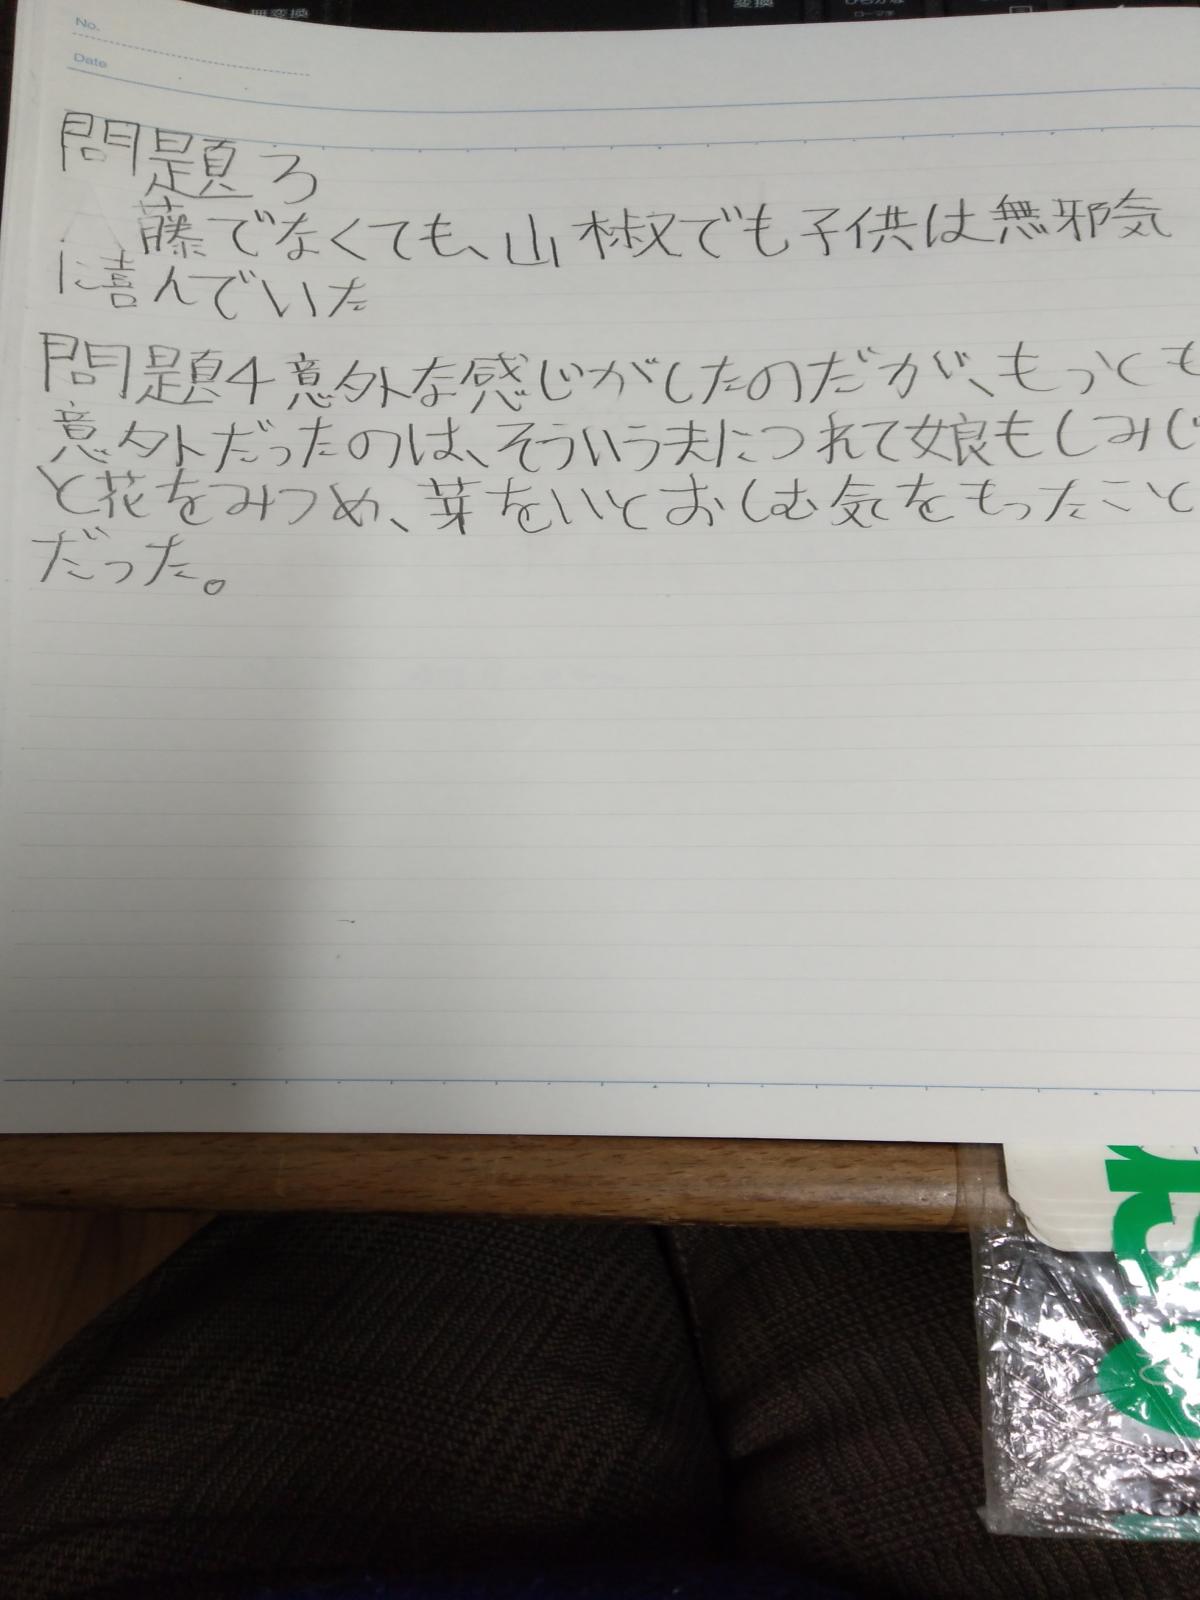 無変換
変換
ローマ字
No.
Date
問題3
藤でなくても、山椒でも子供は無邪気
に喜んでいた
問題4意外な感じがしたのだが、もっとも
意外だったのは、そういう夫につれて娘もしみじ
と花をみつめ、芽をいとおしむ気をもったこと
だった。